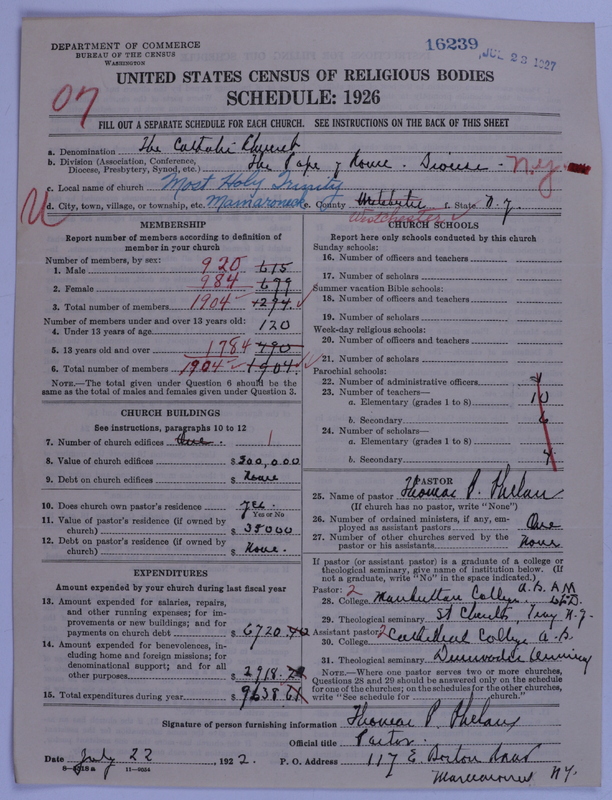 DEPARTMENT OF COMMERCE
BUREAU OF THE CENSUS
WASHINGTON
16239
JUL 23 1927
UNITED STATES CENSUS OF RELIGIOUS BODIES
SCHEDULE: 1926
07
FILL OUT A SEPARATE SCHEDULE FOR EACH CHURCH. SEE INSTRUCTIONS ON THE BACK OF THIS SHEET
a. Denomination The Catholic Church
b. Division (Association, Conference, Diocese, Presbytery, Synod, etc.) The Pope of Rome. Diocese - N.Y.
c. Local name of church Most Holy Trinity
d. City, town, village, or township, etc. Mamaroneck e. County Westchester f. State N.Y.
Westchester
MEMBERSHIP
Report number of members according to definition of
member in your church
Number of members, by sex:
1. Male 920 615
2. Female 984 679
3. Total number of members 1904 1294
Number of members under and over 13 years old:
4. Under 13 years of age 120
5. 13 years old and over 1784 790
6. Total number of members 1904 1904
NOTE.—The total given under Question 6 should be the
same as the total of males and females given under Question 3.
CHURCH BUILDINGS
See instructions, paragraphs 10 to 12
7. Number of church edifices One. 1
8. Value of church edifices $ 300,000
9. Debt on church edifices $ None
10. Does church own pastor's residence? Yes.
Yes or No
11. Value of pastor's residence (if owned by church) $ 35000
12. Debt on pastor's residence (if owned by church) $ None.
EXPENDITURES
Amount expended by your church during last fiscal year
13. Amount expended for salaries, repairs,
and other running expenses; for im-
provements or new buildings; and for
payments on church debt $ 6720
14. Amount expended for benevolences, in-
cluding home and foreign missions; for
denominational support; and for all
other purposes $ 2918
15. Total expenditures during year $ 9638.61
CHURCH SCHOOLS
Report here only schools conducted by this church
Sunday schools:
16. Number of officers and teachers
17. Number of scholars
Summer vacation Bible schools:
18. Number of officers and teachers
19. Number of scholars
Week-day religious schools:
20. Number of officers and teachers
21. Number of scholars
Parochial schools:
22. Number of administrative officers
23. Number of teachers—
a. Elementary (grades 1 to 8) 10
b. Secondary 6
24. Number of scholars—
a. Elementary (grades 1 to 8)
b. Secondary 4
PASTOR
25. Name of pastor Thomas P. Phelan
(If church has no pastor, write "None")
26. Number of ordained ministers, if any, em-
ployed as assistant pastors One
27. Number of other churches served by the
pastor or his assistants None
If pastor (or assistant pastor) is a graduate of a college or
theological seminary, give name of institution below. (If
not a graduate, write "No" in the space indicated.)
Pastor: 2
28. College Manhattan College A.B. A.M
29. Theological seminary St Charles Troy N.Y.
Assistant pastor: 2
30. College Cathedral College A.B.
31. Theological seminary Dunwoodie Seminary
NOTE.—Where one pastor serves two or more churches,
Questions 28 and 29 should be answered only on the schedule
for one of the churches; on the schedules for the other churches,
write "See schedule for church."
Signature of person furnishing information Thomas P. Phelan
Official title Pastor.
Date July 22, 1922. P. O. Address 117 E. Boston Road
Mamaroneck NY.
11—9054